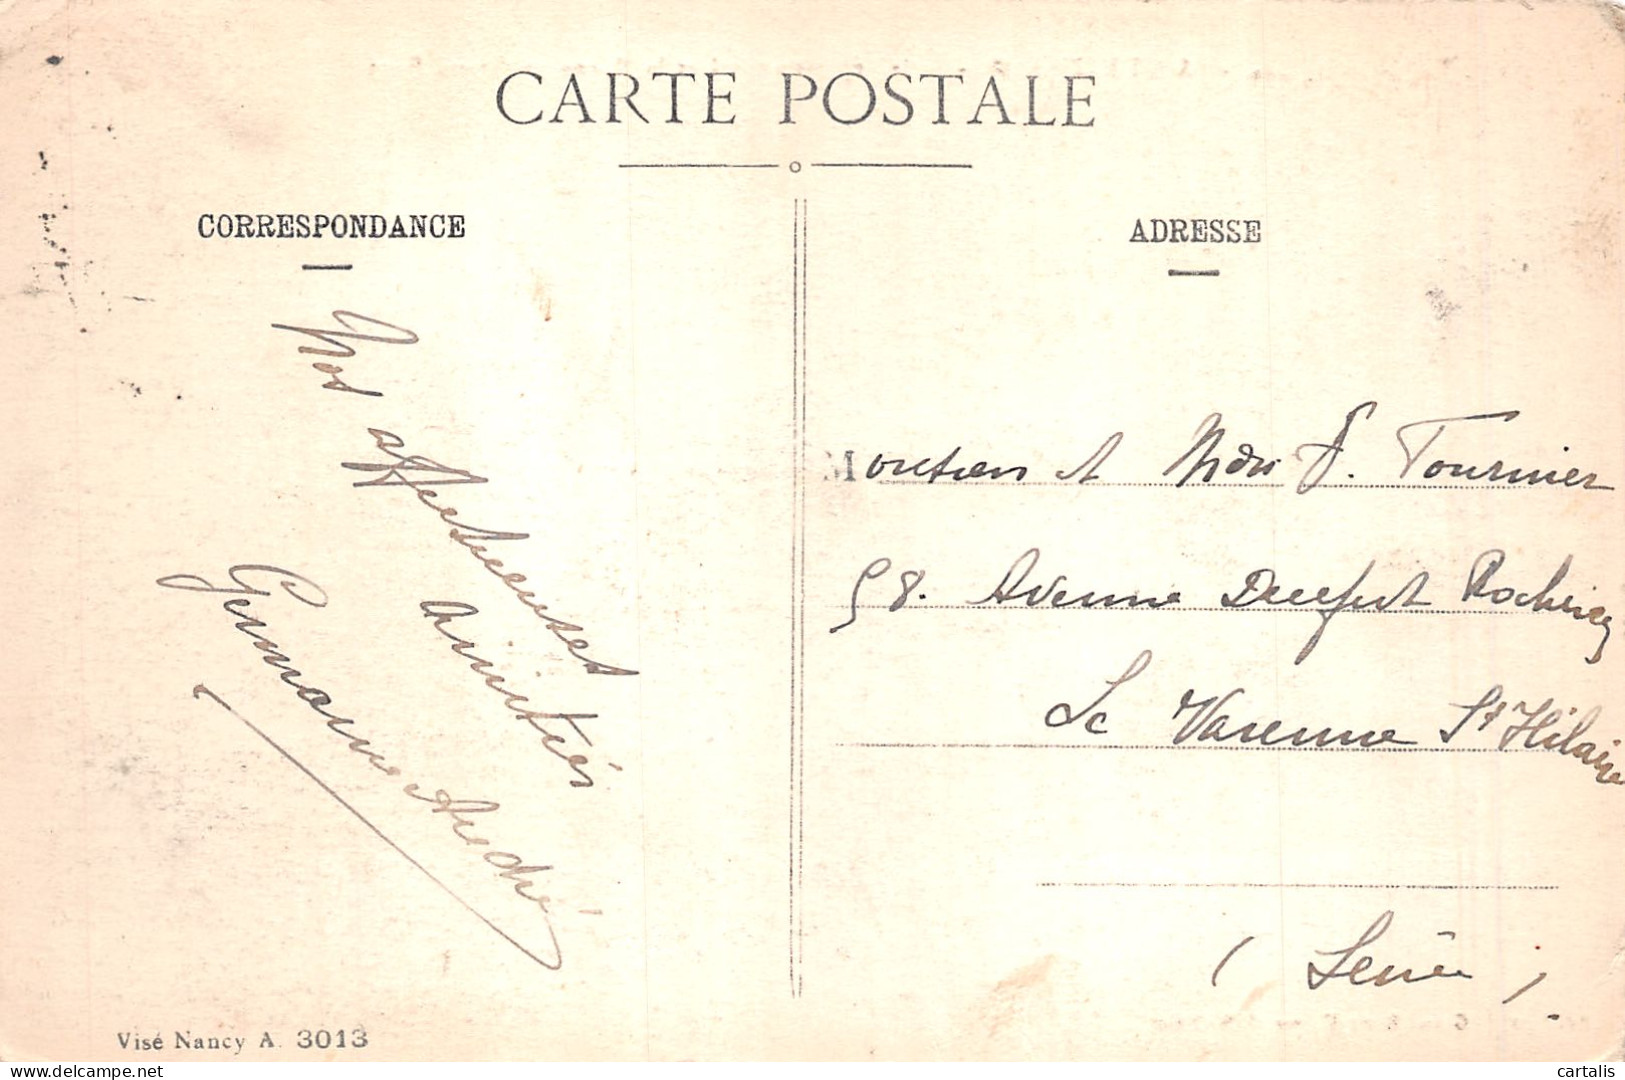 CARTE POSTALE
CORRESPONDANCE
ADRESSE
Nos affectueuses
amitiés
Germaine André
Monsieur et Mme F. Tournier
58. Avenue Rochereau
La Varenne St Hilaire
(Seine)
Visé Nancy A. 3013
delcampe.net
cartalis